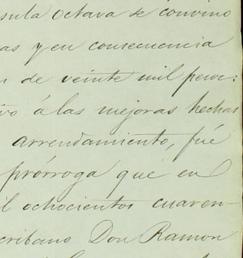 sula octava se convino
as y en consecuencia
de veinte mil pesos:
vo á las mejoras hechas
arrendamiento, fué
prórroga que en
il ochocientos cuaren-
cribano Don Ramon